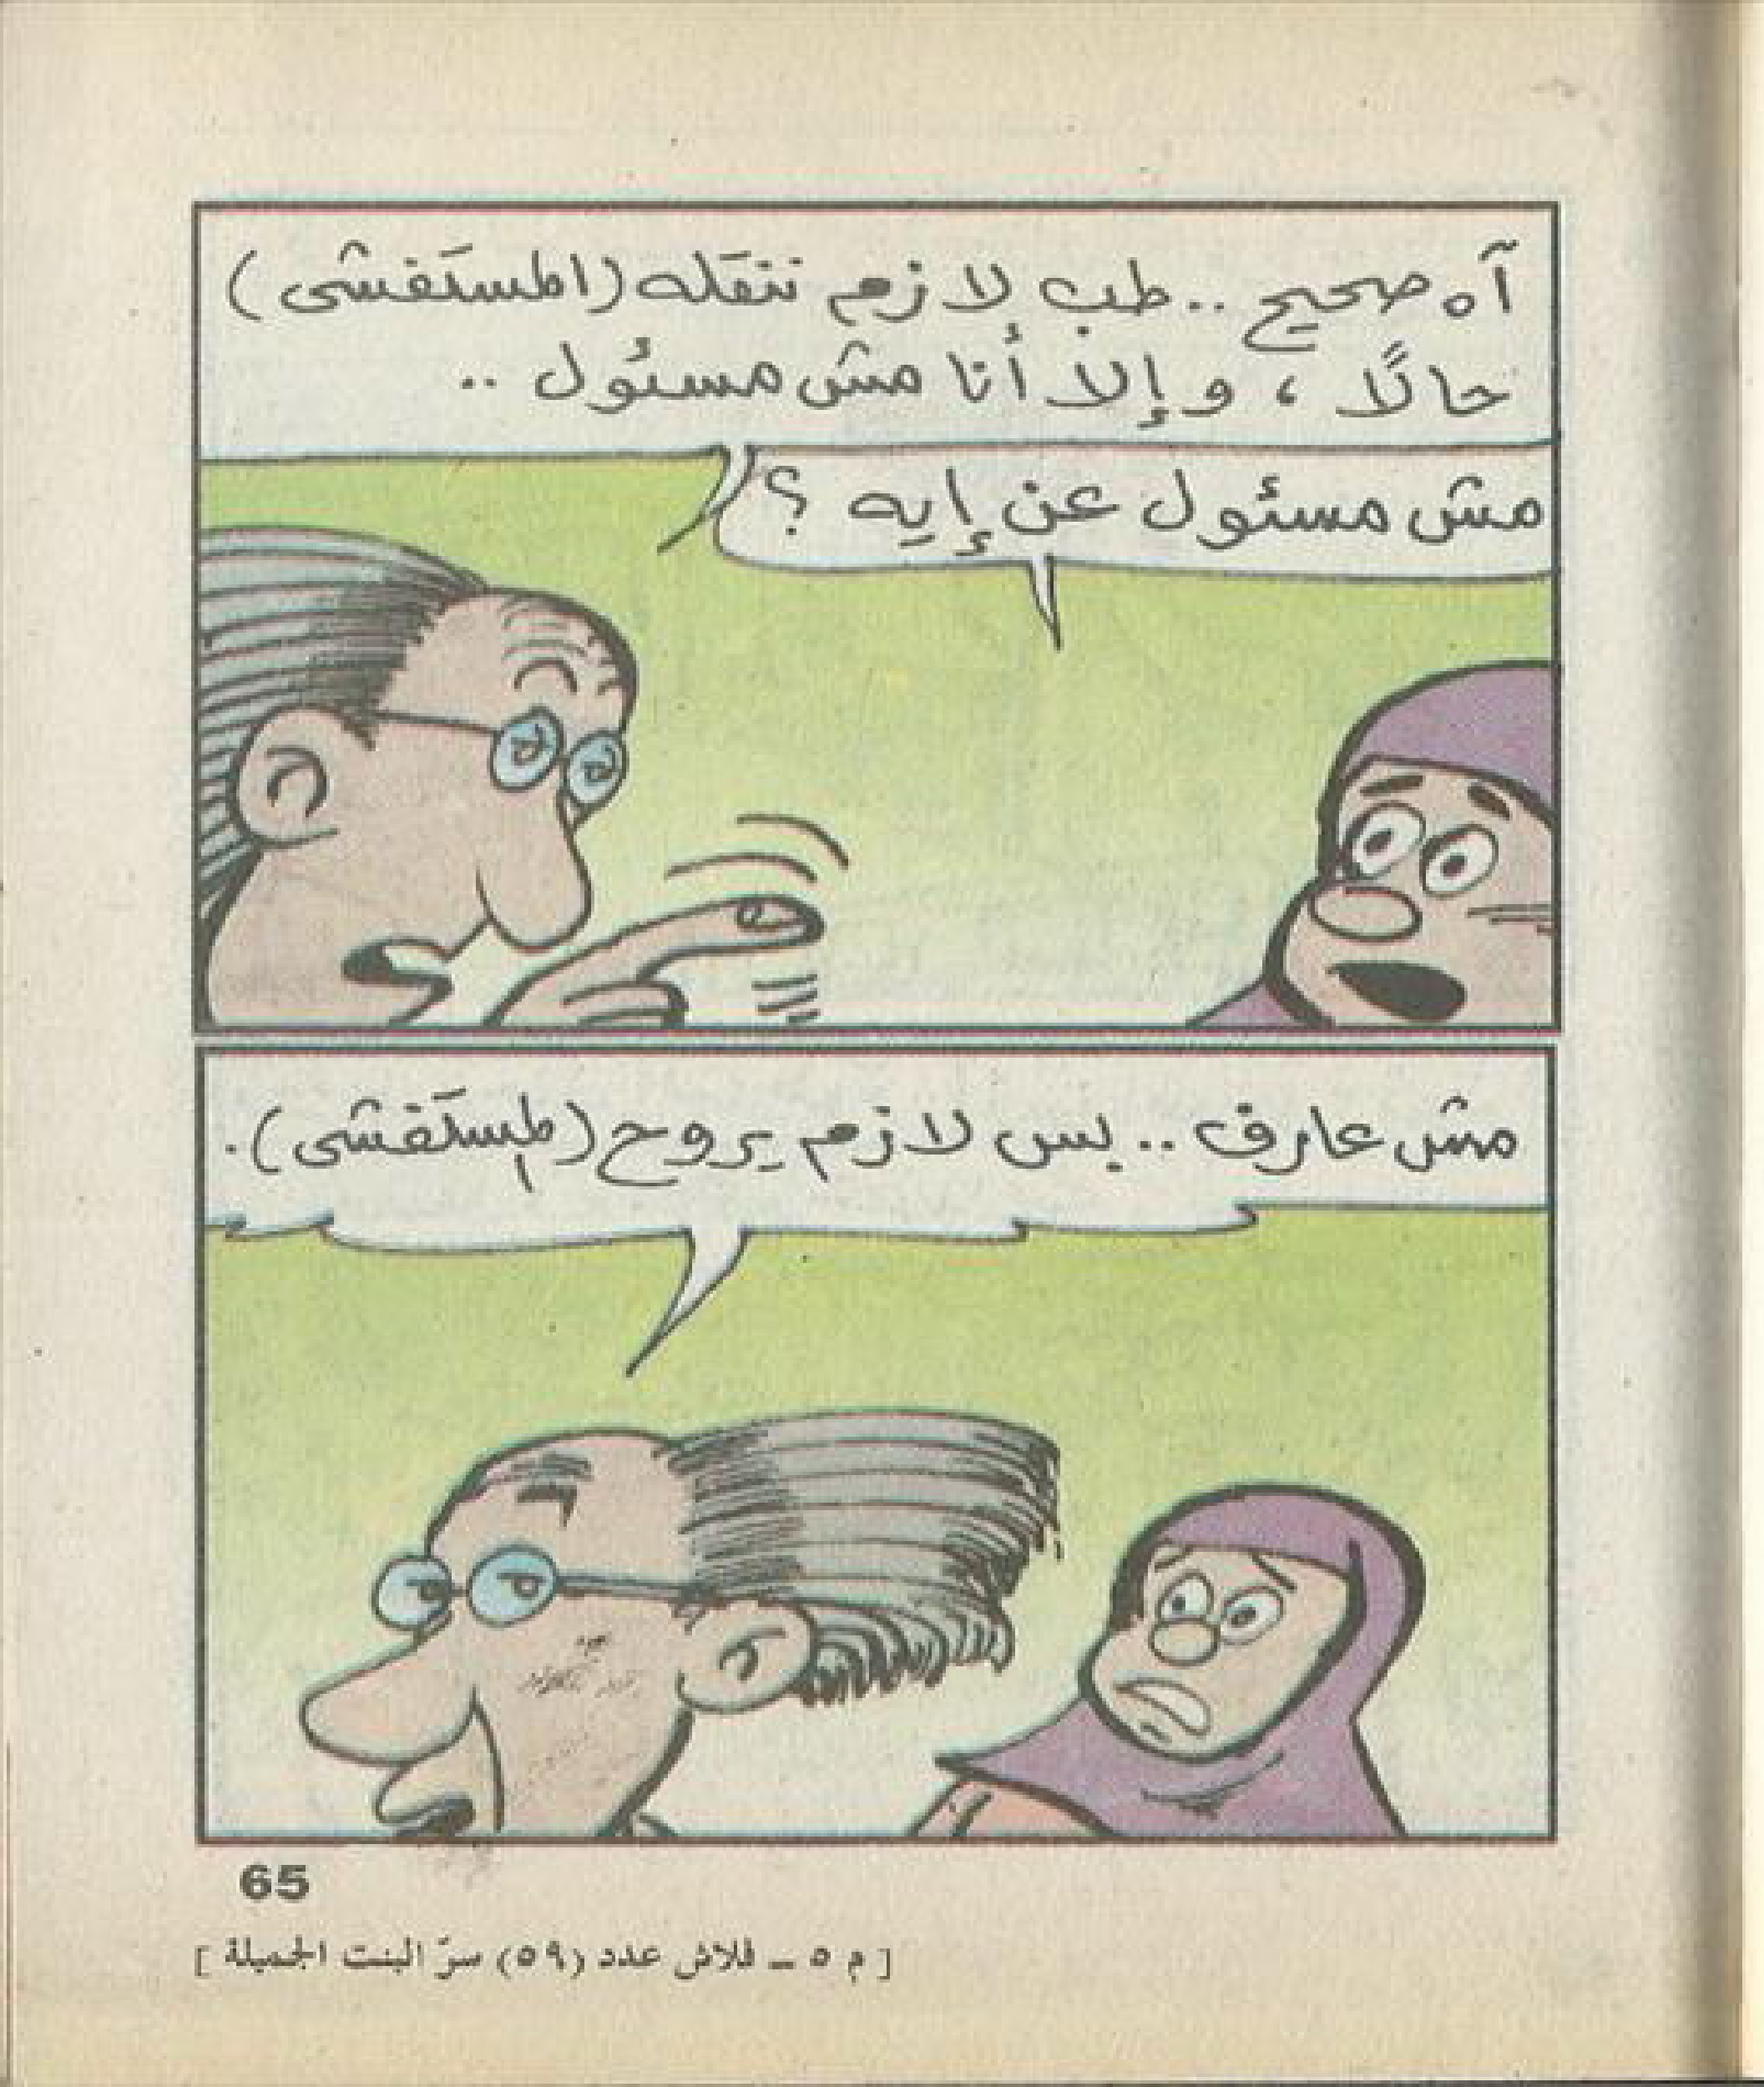 آه صحيح .. طب لازم ننقله (المستَفشى)
حالًا ، وإلا أنا مش مسئول ..
مش مسئول عن إيه ؟
مش عارف .. بس لازم يروح (المستَفشى).
65
[ م ٥ ــ فلاش عدد (٥٩) سرّ البنت الجميلة ]